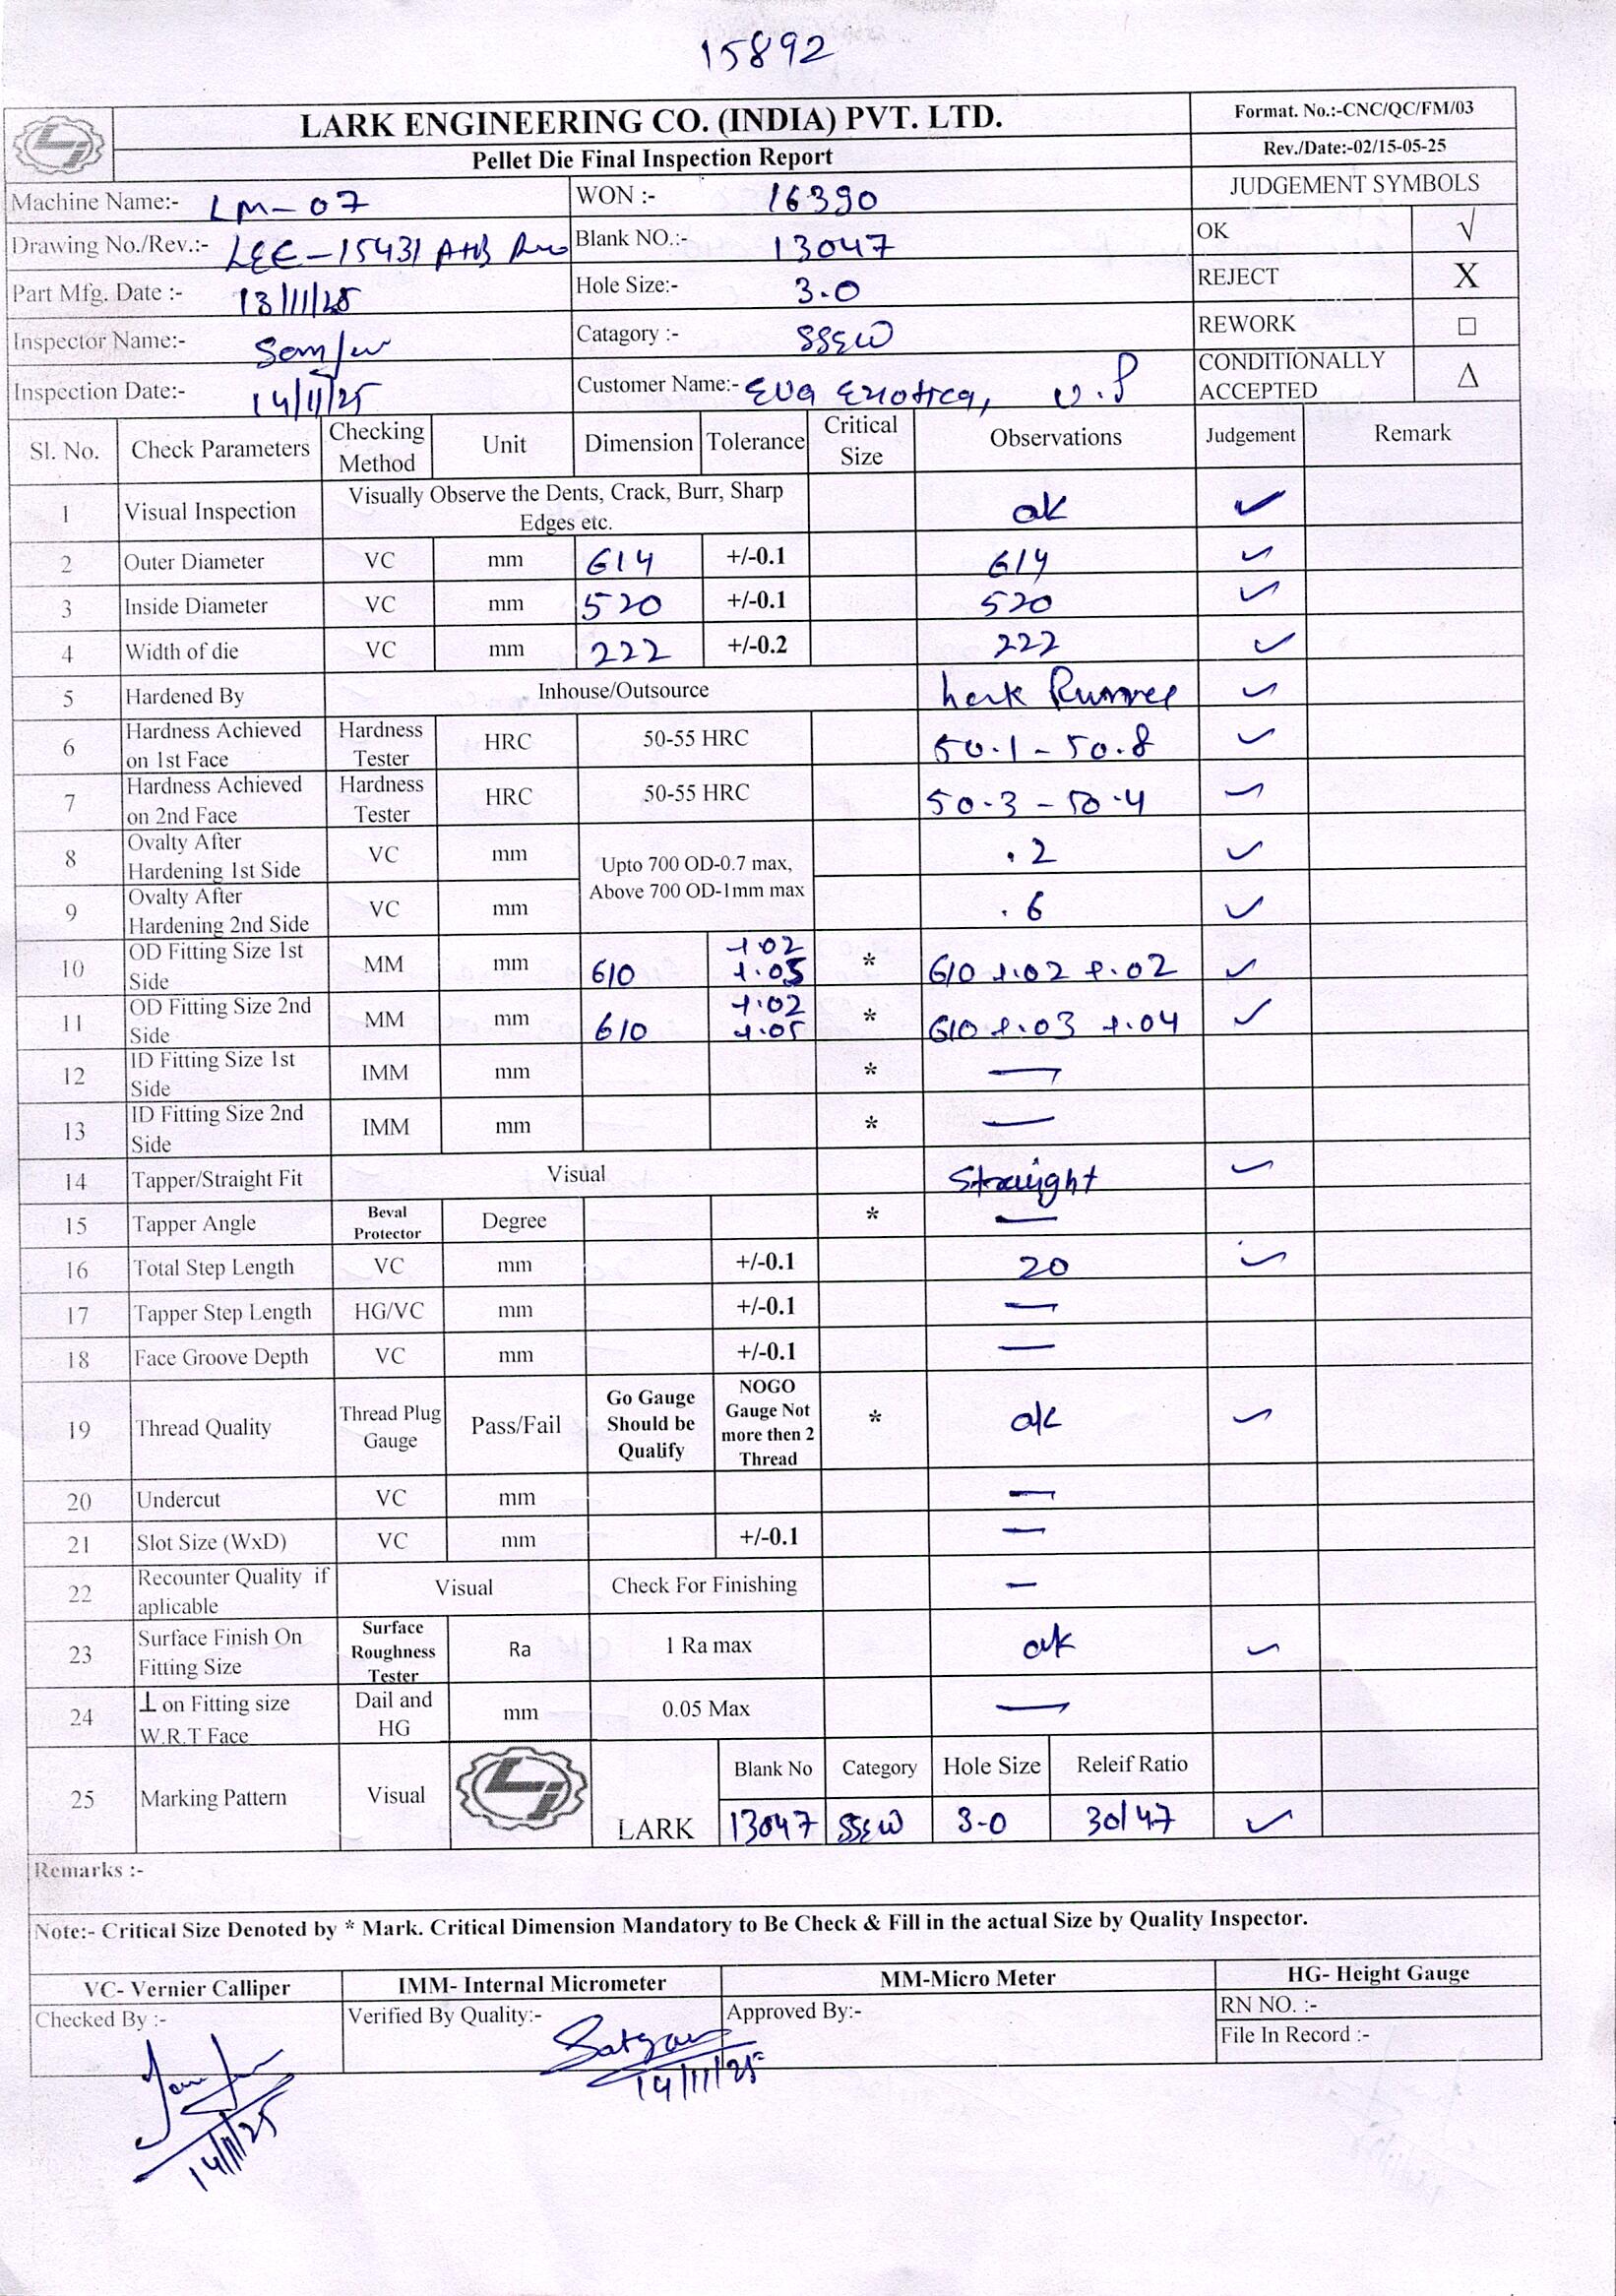 15892
LARK ENGINEERING CO. (INDIA) PVT. LTD.
Format. No.:-CNC/QC/FM/03
Pellet Die Final Inspection Report
Rev./Date:-02/15-05-25
Machine Name:- LM-07
WON :- 16390
JUDGEMENT SYMBOLS
Drawing No./Rev.:- LEE-15431 A+B
Blank NO.:- 13047
OK √
Part Mfg. Date :- 13/11/25
Hole Size:- 3.0
REJECT X
Inspector Name:-
Catagory :- SSEW
REWORK □
Inspection Date:- 14/11/25
Customer Name:- Eva Exotica, U.P
CONDITIONALLY ACCEPTED Δ
Sl. No. Check Parameters Checking Method Unit Dimension Tolerance Critical Size Observations Judgement Remark
1 Visual Inspection Visually Observe the Dents, Crack, Burr, Sharp Edges etc. ok ✓
2 Outer Diameter VC mm 614 +/-0.1 614 ✓
3 Inside Diameter VC mm 520 +/-0.1 520 ✓
4 Width of die VC mm 222 +/-0.2 222 ✓
5 Hardened By Inhouse/Outsource ✓
6 Hardness Achieved on 1st Face Hardness Tester HRC 50-55 HRC 50.1-50.8 ✓
7 Hardness Achieved on 2nd Face Hardness Tester HRC 50-55 HRC 50.3-50.4 ✓
8 Ovalty After Hardening 1st Side VC mm Upto 700 OD-0.7 max, Above 700 OD-1mm max .2 ✓
9 Ovalty After Hardening 2nd Side VC mm .6 ✓
10 OD Fitting Size 1st Side MM mm 610 +.02 +.05 * 610 +.02 +.02 ✓
11 OD Fitting Size 2nd Side MM mm 610 +.02 +.05 * 610 +.03 +.04 ✓
12 ID Fitting Size 1st Side IMM mm * —
13 ID Fitting Size 2nd Side IMM mm * —
14 Tapper/Straight Fit Visual Straight ✓
15 Tapper Angle Beval Protector Degree * —
16 Total Step Length VC mm +/-0.1 20 ✓
17 Tapper Step Length HG/VC mm +/-0.1 —
18 Face Groove Depth VC mm +/-0.1 —
19 Thread Quality Thread Plug Gauge Pass/Fail Go Gauge Should be Qualify NOGO Gauge Not more then 2 Thread * ok ✓
20 Undercut VC mm —
21 Slot Size (WxD) VC mm +/-0.1 —
22 Recounter Quality if aplicable Visual Check For Finishing —
23 Surface Finish On Fitting Size Surface Roughness Tester Ra 1 Ra max ok ✓
24 ⊥ on Fitting size W.R.T Face Dail and HG mm 0.05 Max —
25 Marking Pattern Visual LARK Blank No Category Hole Size Releif Ratio
13047 SSEW 3.0 30/47 ✓
Remarks :-
Note:- Critical Size Denoted by * Mark. Critical Dimension Mandatory to Be Check & Fill in the actual Size by Quality Inspector.
VC- Vernier Calliper IMM- Internal Micrometer MM-Micro Meter HG- Height Gauge
Checked By :- Verified By Quality:- Approved By:- RN NO. :-
File In Record :-
14/11/25
14/11/25